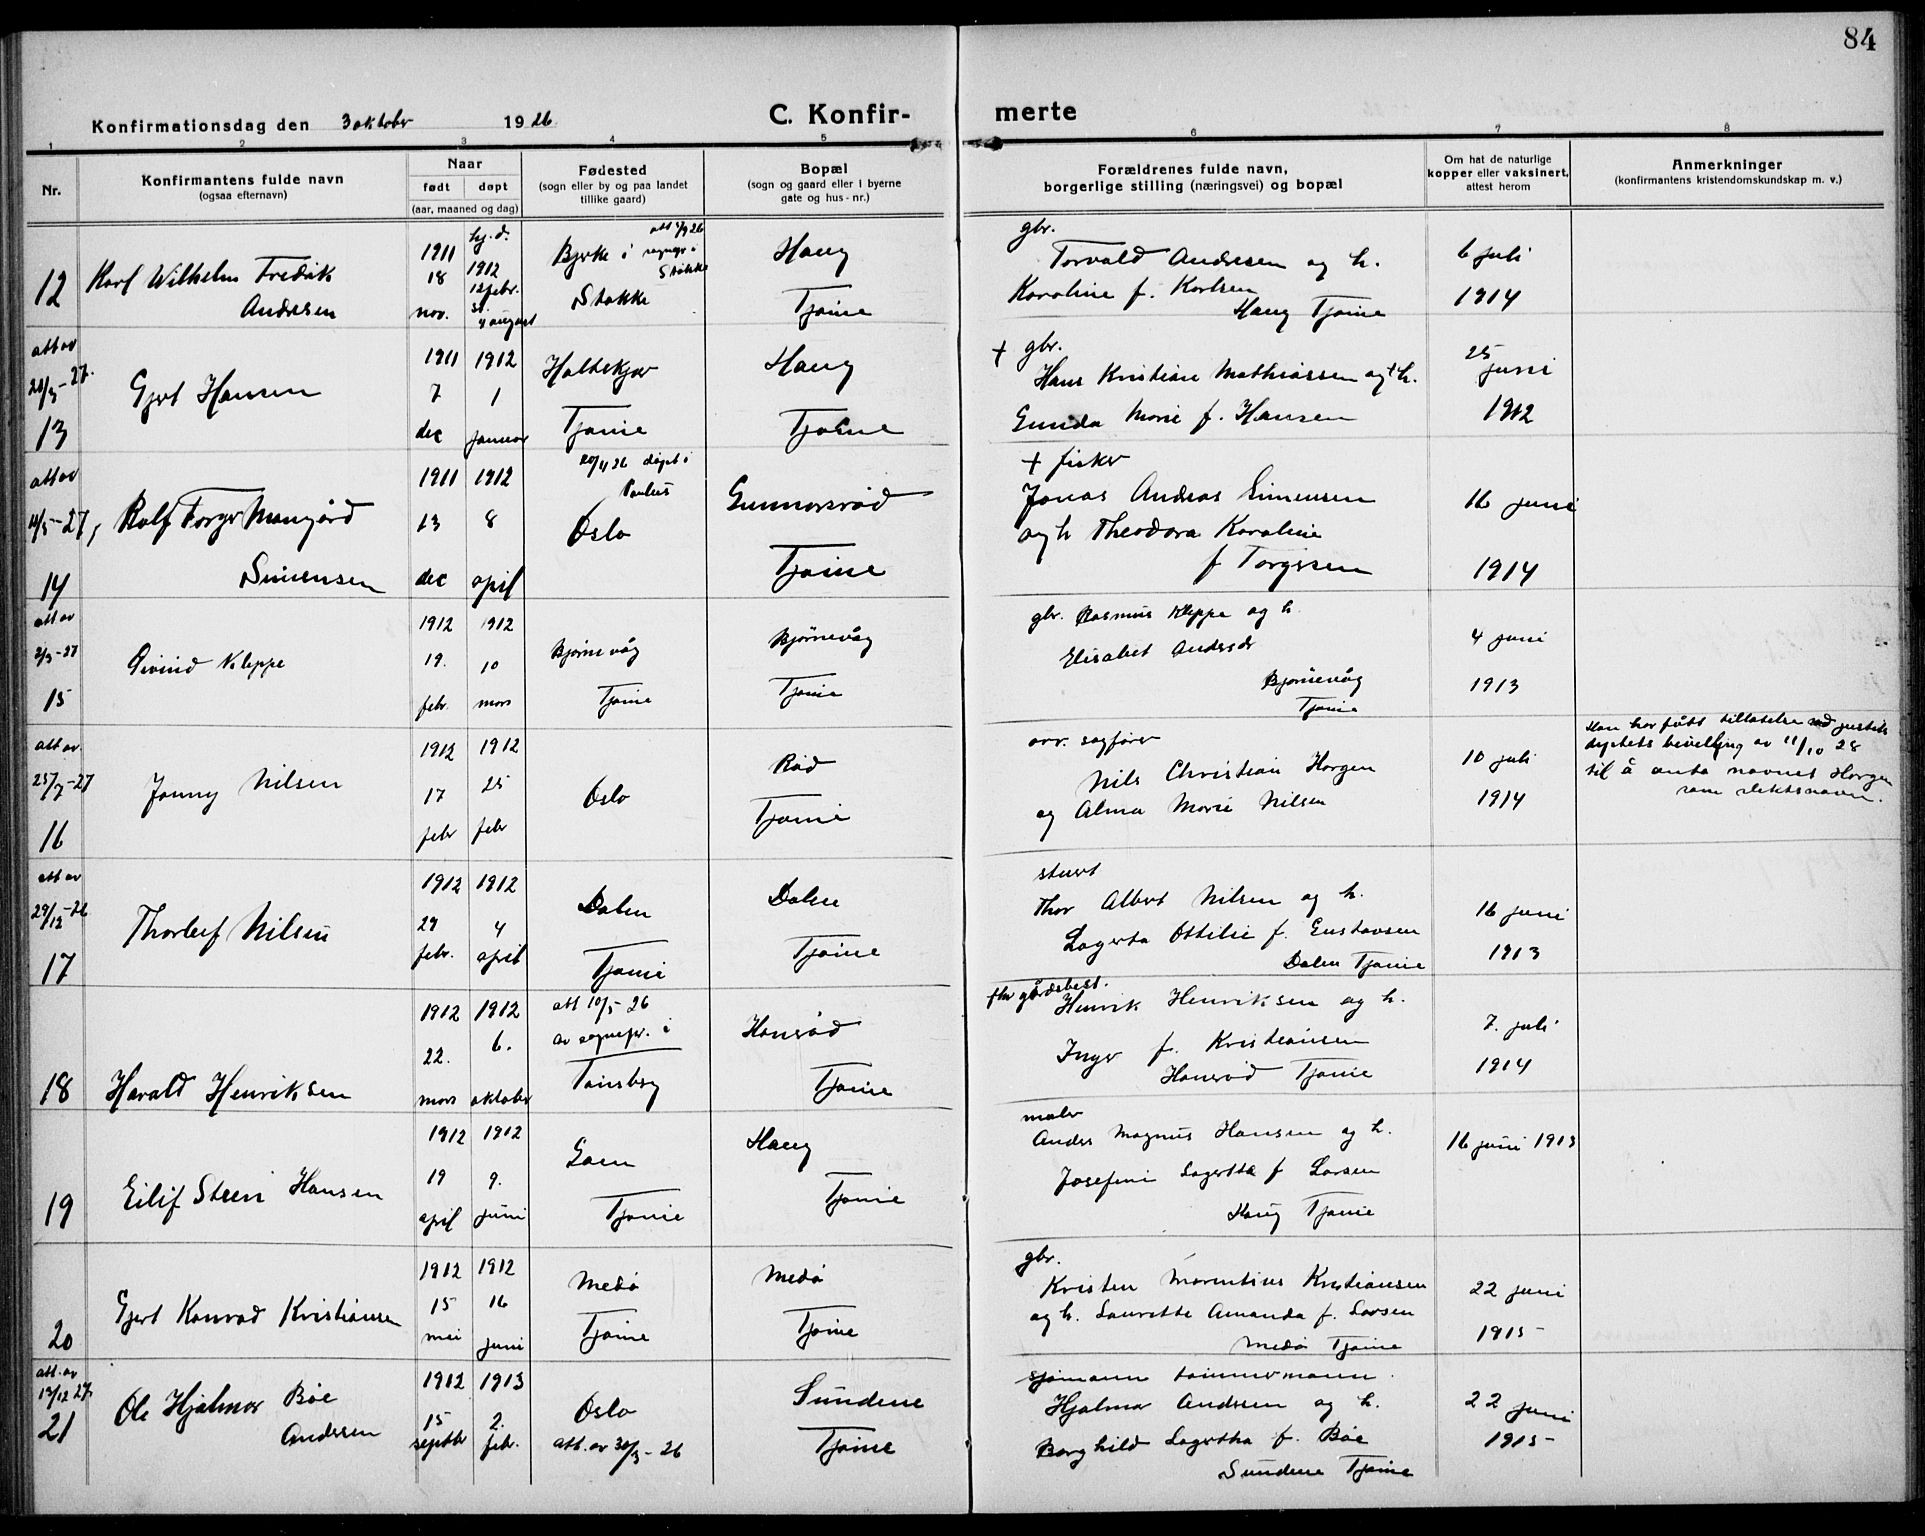 84
Konfirmationsdag den 3 oktober 1926
C. Konfir-
merte
1 2 3 4 5 6 7 8
Nr.
Konfirmantens fulde navn
(ogsaa efternavn)
Naar
født døpt
(aar, maaned og dag)
Fødested
(sogn eller by og paa landet
tillike gaard)
Bopæl
(sogn og gaard eller i byerne
gate og hus-nr.)
Forældrenes fulde navn,
borgerlige stilling (næringsvei) og bopæl
Om hat de naturlige
kopper eller vaksinert,
attest herom
Anmerkninger
(konfirmantens kristendomskundskap m. v.)
12
Karl Wilhelm Fredrik
Andresen
1911
18
nov.
hj. d.
1912
12 febr.
st.
4 august
Bjerke i
Stokke
Haug
Tjøme
gbr.
Torvald Andresen og h.
Karoline f. Karlsen
Haug Tjøme
6 juli
1914
att av
13
Gjert Hansen
1911
7
dec
1912
1
januar
Holtekjær
Tjøme
Haug
Tjøme
+ gbr.
Hans Kristian Mathiassen og + h.
Gunda Marie f. Hansen
25
juni
1912
att av
14
Rolf Torger Mangård
Simensen
1911
13
dec
1912
8
april
20/4 26 døpt i
Paulus
Oslo
Gunnarsrød
Tjøme
+ fisker
Jonas Andreas Simensen
og h Theodora Karoline
f Torgersen
16 juni
1914
att av
2/3-27
15
Øivind Kleppe
1912
19.
febr.
1912
10
mars
Bjørnevåg
Tjøme
Bjørnevåg
Tjøme
gbr. Rasmus Kleppe og h.
Elisabet Andersdr
Bjørnevåg
Tjøme
4 juni
1913
att av
16
Jonny Nilsen
1912
17
febr
1912
25
febr
Oslo
Rød
Tjøme
ovr. sagfører
Nils Christian Horgen
og Alma Marie Nilsen
10 juli
1914
Han har fått tillatelse ved justits
dptets bevilling av 11/10 28
til å anta navnet Horgen
som slektsnavn.
att av
29/12-26
17
Thorleif Nilsen
1912
29
febr.
1912
4
april
Dalen
Tjøme
Dalen
Tjøme
stuert
Thor Albert Nilsen og h.
Lagerta Ottilie f. Gustavsen
Dalen Tjøme
16 juni
1913
18
Harald Henriksen
1912
22.
mars
1912
6.
oktober
att 10/5-26
av sognepr. i
Tønsberg
Honerød
Tjøme
fhv gårdsbest.
Henrik Henriksen og h.
Inger f. Kristiansen
Honerød Tjøme
7. juli
1914
19
Eilif Steen Hansen
1912
19
april
1912
9.
juni
Gåen
Tjøme
Haug
Tjøme
maler
Anders Magnus Hansen og h.
Josefine Lagertha f Larsen
Haug Tjøme
16 juni 1913
20
Gjert Konrad Kristiansen
1912
15
mai
1912
16
juni
Medø
Tjøme
Medø
Tjøme
gbr.
Kristen Marentius Kristiansen
og h. Lauritte Amanda f. Larsen
Medø Tjøme
22 juni
1915
att. av
17/12 27
21
Ole Hjalmar Bøe
Andersen
1912
15
septbr
1913
2.
febr.
Oslo
att. av 30/3-26
Sundene
Tjøme
sjømann tømmermann.
Hjalmar Andersen og h.
Borghild Lagertha f. Bøe
Sundene Tjøme
22 juni
1915